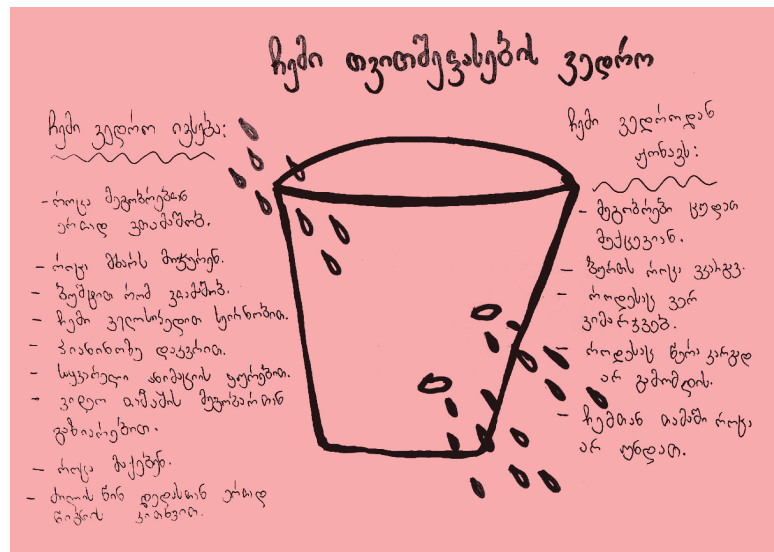 ჩემი თვითშეფასების ვედრო
ჩემი ვედრო ივსება:
- როცა მეგობრებთან
ერთად ვთამაშობ.
- როცა მხარს მიჭერენ.
- ბუშტით რომ ვთამაშობ.
- ჩემი ველოსიპედით სეირნობით.
- პიანინოზე დაკვრით.
- საყვარელი ანიმაციის ყურებით.
- ვიდეო თამაშის მეგობართან
გაზიარებით.
- როცა მაქებენ.
- ძილის წინ დედასთან ერთად
წიგნის კითხვით.
ჩემი ვედროდან
ჟონავს:
- მეგობრები ცუდათ
მექცევიან.
- ბურთს როცა ვკარგავ.
- როდესაც ვერ
ვიმარჯვებ.
- როდესაც წერა კარგად
არ გამომდის.
- ჩემთან თამაში როცა
არ უნდათ.